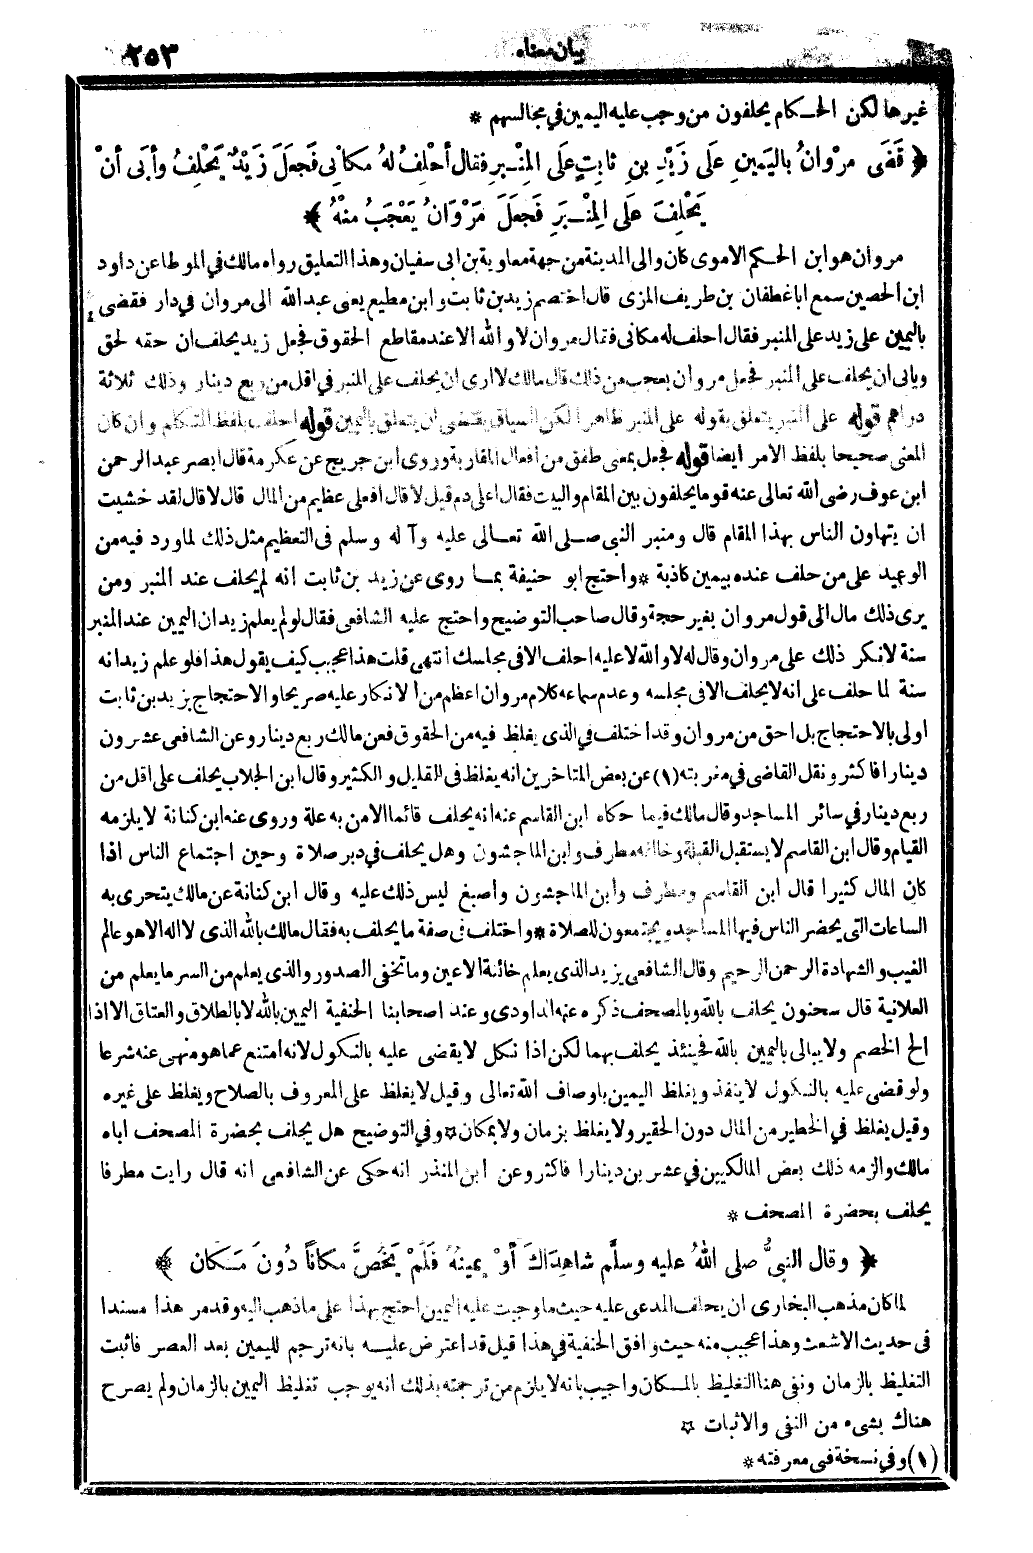 بيان معناه ٢٥٣
غيرها لكن الحكام يحلفون من وجب عليه اليمين في مجالسهم *
﴿ قَضَى مَرْوانُ باليَمينِ عَلَى زَيْدِ بنِ ثابِتٍ عَلَى المِنْبرِ فقال أحْلِفُ لهُ مكانِي فَجعلَ زَيْدٌ يَحْلِفُ وأبَى أنْ
يَحْلِفَ عَلَى المِنْبَرِ فَجعَلَ مَرْوَانُ يَعْجَبُ منْهُ ﴾
مروان هو ابن الحكم الاموى كان والى المدينة من جهة معاوية بن ابى سفيان وهذا التعليق رواه مالك في الموطا عن داود
ابن الحصين سمع اباغطفان بن طريف المزى قال اختصم زيد بن ثابت وابن مطيع يعنى عبد الله الى مروان في دار فقضى
باليمين على زيد على المنبر فقال احلف له مكانى فقال مروان لا والله الا عند مقاطع الحقوق فجعل زيد يحلف ان حقه لحق
ويابى ان يحلف على المنبر فجعل مروان يعجب من ذلك قال مالك لا ارى ان يحلف على المنبر في اقل من ربع دينار وذلك ثلاثة
دراهم قوله على المنبر يتعلق بقوله على المنبر ظاهرا لكن السياق يقتضى ان يتعلق باليمين قوله احلف بلفظ المتكلم وان كان
المعنى صحيحا بلفظ الامر ايضا قوله فجعل بمعنى طفق من أفعال المقاربة وروى ابن جريج عن عكرمة قال ابصر عبد الرحمن
ابن عوف رضى الله تعالى عنه قوما يحلفون بين المقام والبيت فقال اعلى دم قيل لا قال افعلى عظيم من المال قال لا قال لقد خشيت
ان يتهاون الناس بهذا المقام قال ومنبر النبى صلى الله تعالى عليه وآله وسلم فى التعظيم مثل ذلك لما ورد فيه من
الوعيد على من حلف عنده بيمين كاذبة * واحتج ابو حنيفة بما روى عن زيد بن ثابت انه لم يحلف عند المنبر ومن
يرى ذلك مال الى قول مروان بغير حجة وقال صاحب التوضيح واحتج عليه الشافعى فقال لو لم يعلم زيد ان اليمين عند المنبر
سنة لانكر ذلك على مروان وقال له لا والله لا عليه احلف الا فى مجلسك انتهى قلت هذا عجيب كيف يقول هذا فلو علم زيد انه
سنة لما حلف على انه لا يحلف الا فى مجلسه وعدم سماعه كلام مروان اعظم من الانكار عليه صريحا والاحتجاج بزيد بن ثابت
اولى بالاحتجاج بل احق من مروان وقد اختلف في الذى يغلظ فيه من الحقوق فعن مالك ربع دينار وعن الشافعى عشرون
دينارا فاكثر ونقل القاضى في معربته (١) عن بعض المتاخرين انه يغلظ فى القليل والكثير وقال ابن الجلاب يحلف على اقل من
ربع دينار في سائر المساجد وقال مالك فيما حكاه ابن القاسم عنه انه يحلف قائما الا من به علة وروى عنه ابن كنانة لا يلزمه
القيام وقال ابن القاسم لا يستقبل القبلة وخالفه مطرف وابن الماجشون وهل يحلف في دبر صلاة وحين اجتماع الناس اذا
كان المال كثيرا قال ابن القاسم ومطرف وابن الماجشون واصبغ ليس ذلك عليه وقال ابن كنانة عن مالك يتحرى به
الساعات التى يحضر الناس فيها المساجد ويجتمعون للصلاة * واختلف فى صفة ما يحلف به فقال مالك بالله الذى لا اله الا هو عالم
الغيب والشهادة الرحمن الرحيم وقال الشافعى يزيد الذى يعلم خائنة الاعين وما تخفى الصدور والذى يعلم من السر ما يعلم من
العلانية قال سحنون يحلف بالله وبالمصحف ذكره عنه الداودى وعند اصحابنا الحنفية اليمين بالله لا بالطلاق والعتاق الا اذا
الح الخصم ولا يبالى باليمين بالله فحينئذ يحلف بهما لكن اذا نكل لا يقضى عليه بالنكول لانه امتنع عما هو منهى عنه شرعا
ولو قضى عليه بالنكول لا ينفذ ويغلظ اليمين باوصاف الله تعالى وقيل لا يغلظ على المعروف بالصلاح ويغلظ على غيره
وقيل يغلظ في الخطير من المال دون الحقير ولا يغلظ بزمان ولا بمكان * وفي التوضيح هل يحلف بحضرة المصحف اباه
مالك والزمه ذلك بعض المالكيين في عشرين دينارا فاكثر وعن ابن المنذر انه حكى عن الشافعى انه قال رايت مطرفا
يحلف بحضرة المصحف *
﴿ وقال النبىُّ صلى اللهُ عليه وسلَّم شاهِدَاكَ أوْ يمينُهُ فَلَمْ يَخُصَّ مكاناً دُونَ مَكان ﴾
لما كان مذهب البخارى ان يحلف المدعى عليه حيث ما وجبت عليه اليمين احتج بهذا على ما ذهب اليه وقد مر هذا مسندا
فى حديث الاشعث وهذا عجيب منه حيث وافق الحنفية في هذا قيل قد اعترض عليه بانه ترجم لليمين بعد العصر فاثبت
التغليظ بالزمان ونفى هنا التغليظ بالمكان واجيب بانه لا يلزم من ترجمته بذلك انه يوجب تغليظ اليمين بالزمان ولم يصرح
هناك بشىء من النفى والاثبات *
(١) وفي نسخة فى معرفته *